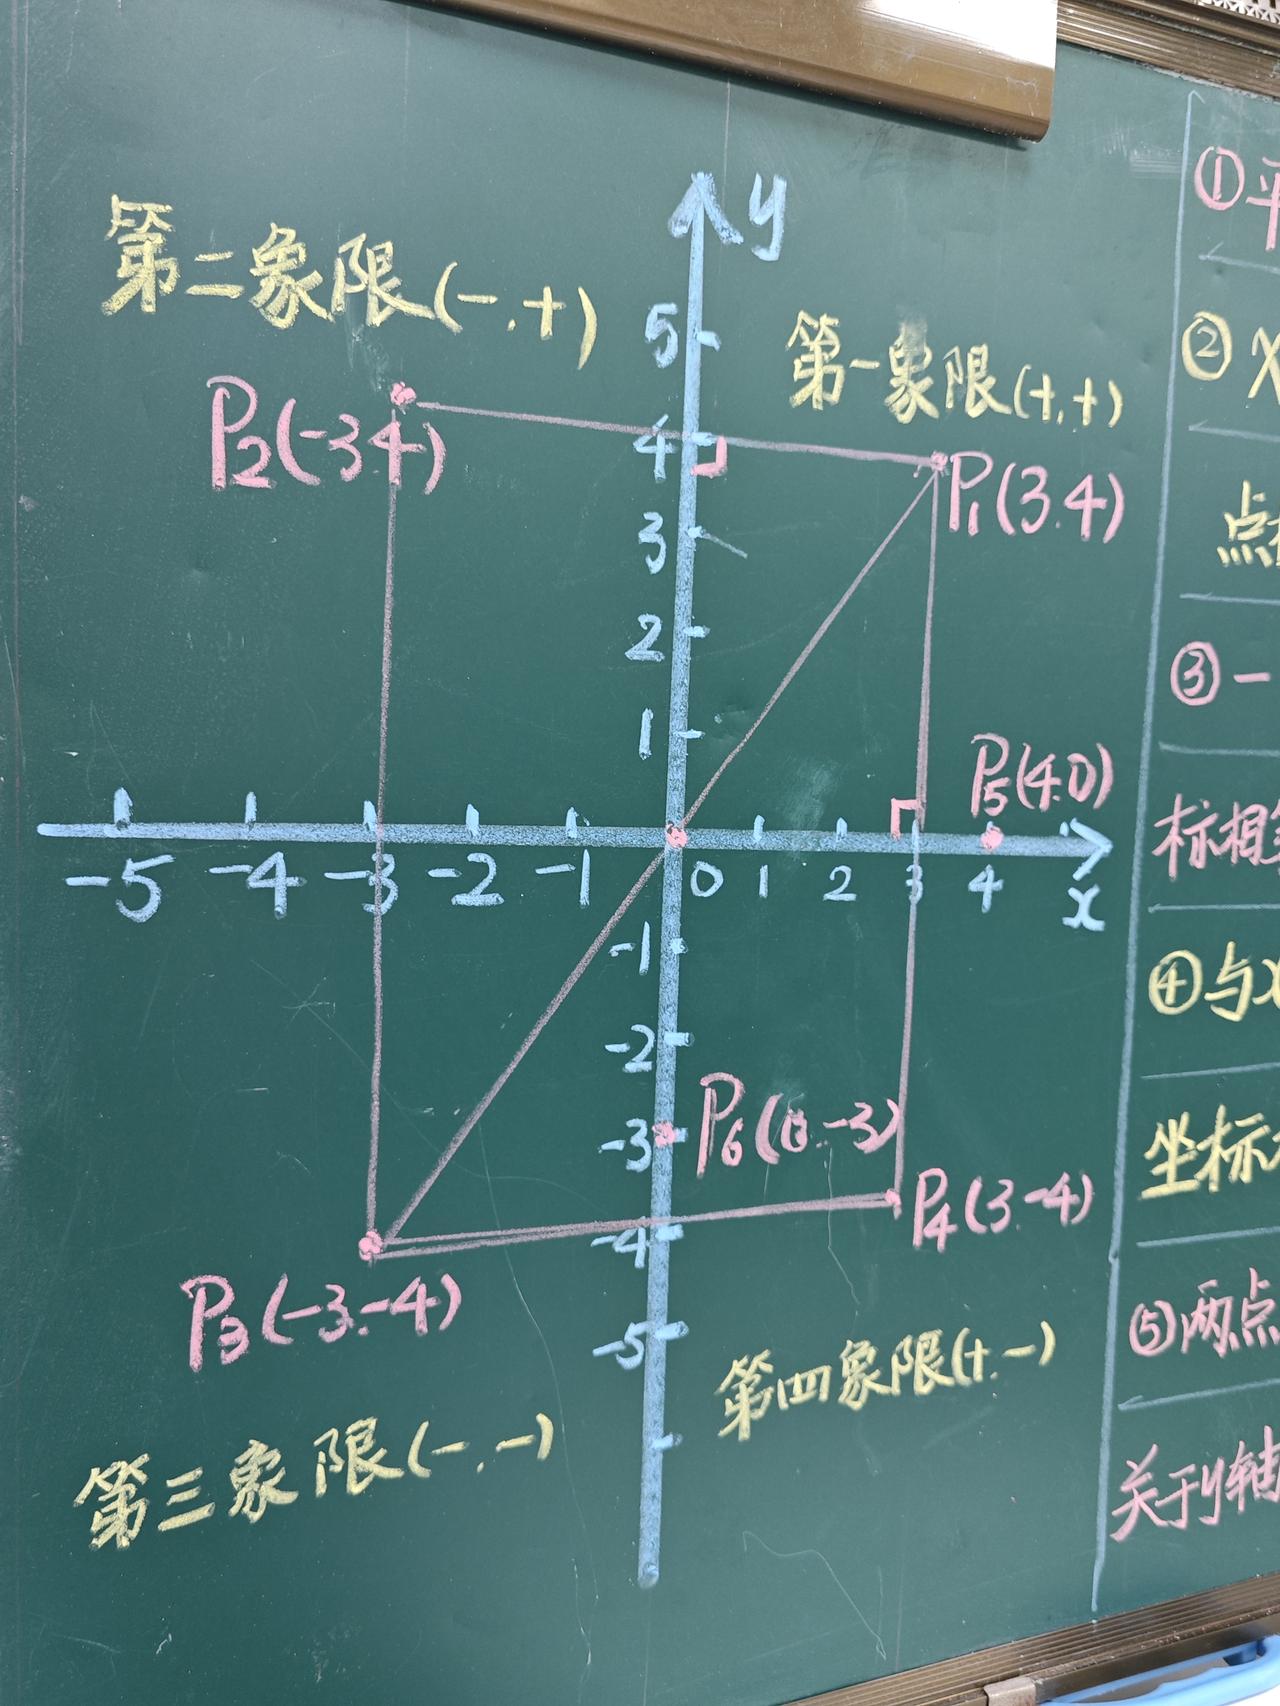 y
第二象限(-.+)
第一象限(+.+)
P2(-3 4)
P1(3.4)
5
4
3
2
1
P5(4.0)
-5 -4 -3 -2 -1 0 1 2 3 4 x
-1
-2
-3
P6(0.-3)
-4
P4(3.-4)
P3(-3.-4)
-5
第四象限(+.-)
第三象限(-.-)
①平
② X
点
③一
标相
④与X
坐标
⑤两点
关于y轴